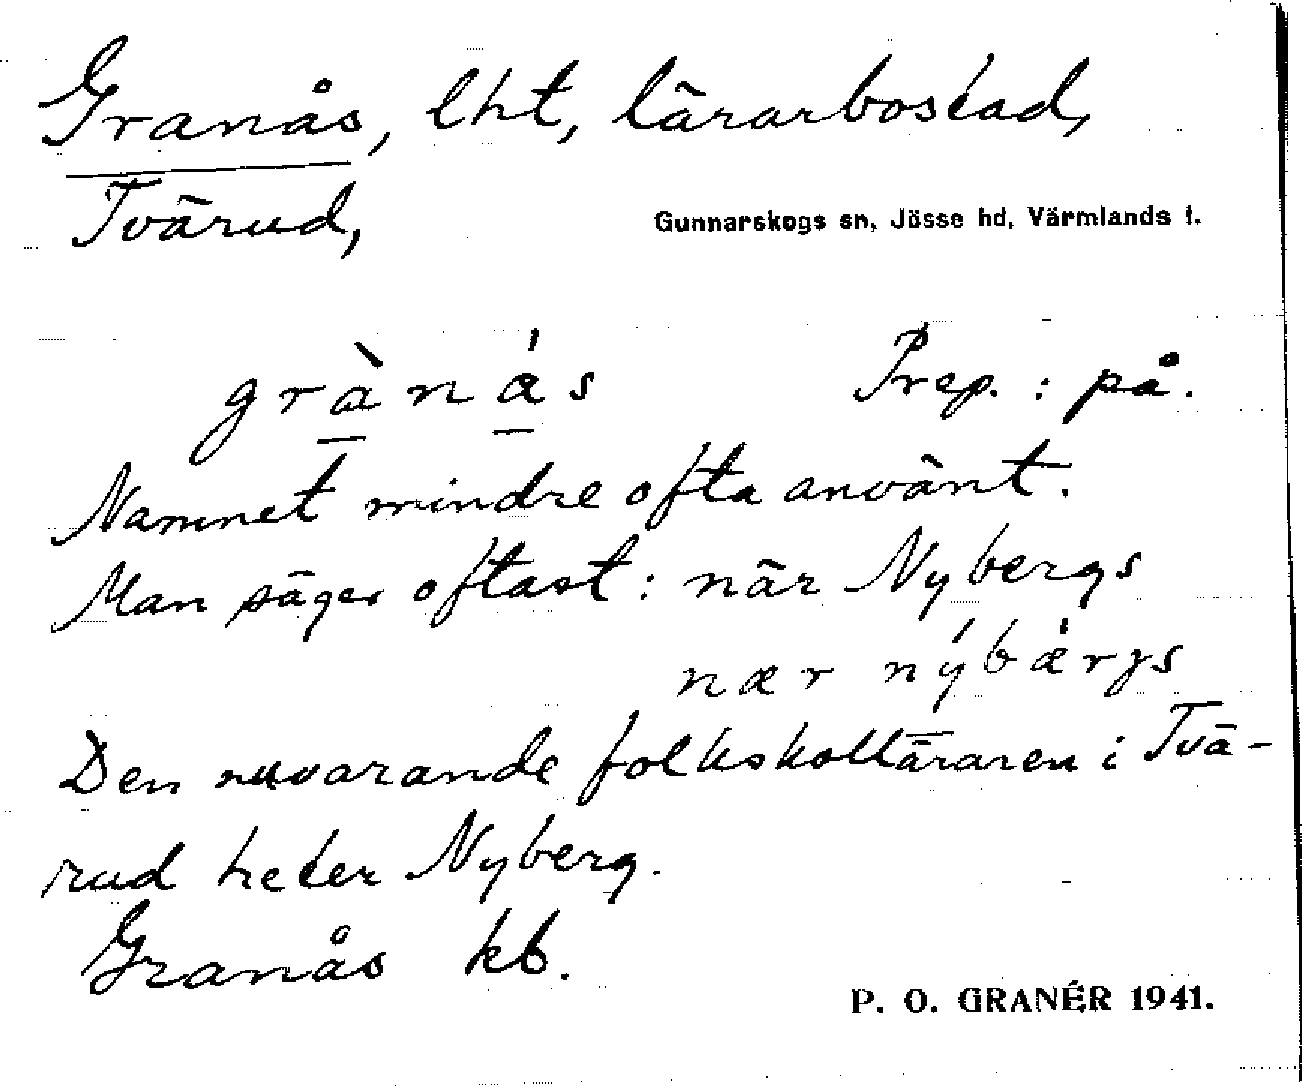 Granås, lht, lärarbostad,
Tvärud,
Gunnarskogs sn, Jösse hd, Värmlands l.
grànás Prep. : på.
Namnet mindre ofta använt.
Man säger oftast : när Nybergs
nær nýbǽrgs
Den nuvarande folkskolläraren i Tvä-
rud heter Nyberg.
Granås kb.
P. O. GRANÉR 1941.